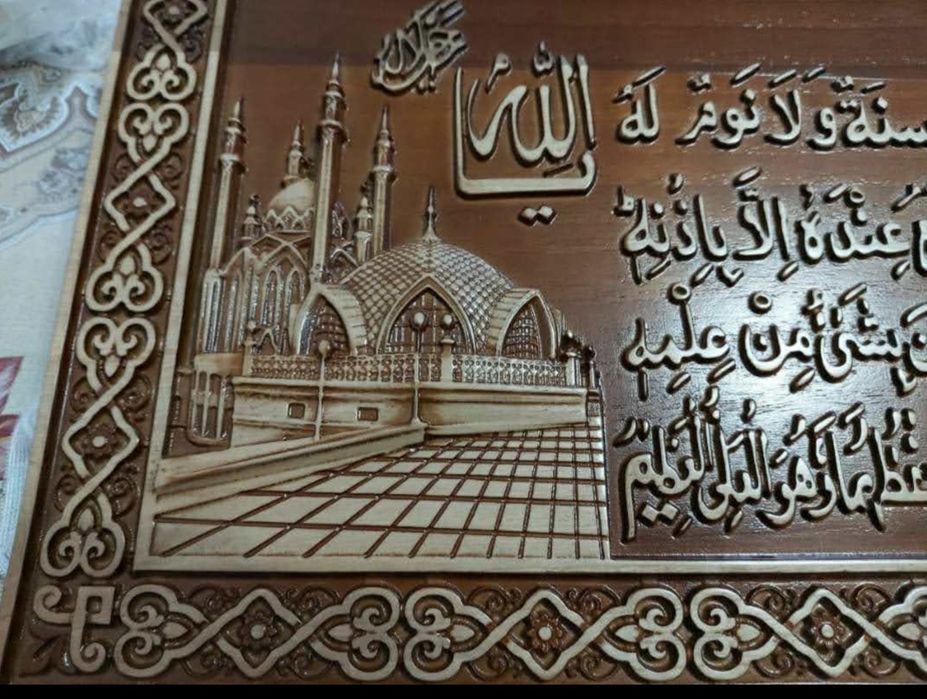 جل جلاله
يا الله
سِنَةٌ وَلَا نَوْمٌ لَهُ
عِنْدَهُ إِلَّا بِإِذْنِهِ
بِشَيْءٍ مِنْ عِلْمِهِ
وَهُوَ الْعَلِيُّ الْعَظِيمُ